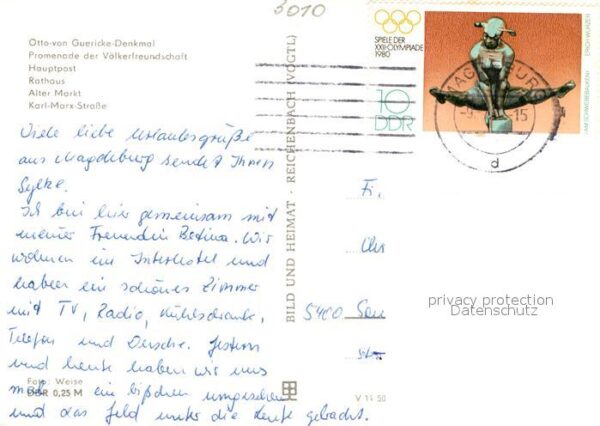 5010
Otto-von Guericke-Denkmal
Promenade der Völkerfreundschaft
Hauptpost
Rathaus
Alter Markt
Karl-Marx-Straße
Viele liebe Urlaubsgrüße
aus Magdeburg sendet Ihnen
Sylke.
Ich bin hier gemeinsam mit
meiner Freundin Bettina. Wir
wohnen im Interhotel und
haben ein schönes Zimmer
mit TV, Radio, Kühlschranke,
Telefon und Dusche. Gestern
und heute haben wir uns
mal ein bißchen umgesehen
und das Geld unter die Leute gebracht.
Foto: Weise
DDR 0,25 M
BILD UND HEIMAT · REICHENBACH (VOGTL)
V 11 50
SPIELE DER
XXII.OLYMPIADE
1980
10
DDR
ERICH WUNDER
AM SCHWEBEBALKEN
MAGDEBURG
-15
d
Fr.
5400
privacy protection
Datenschutz